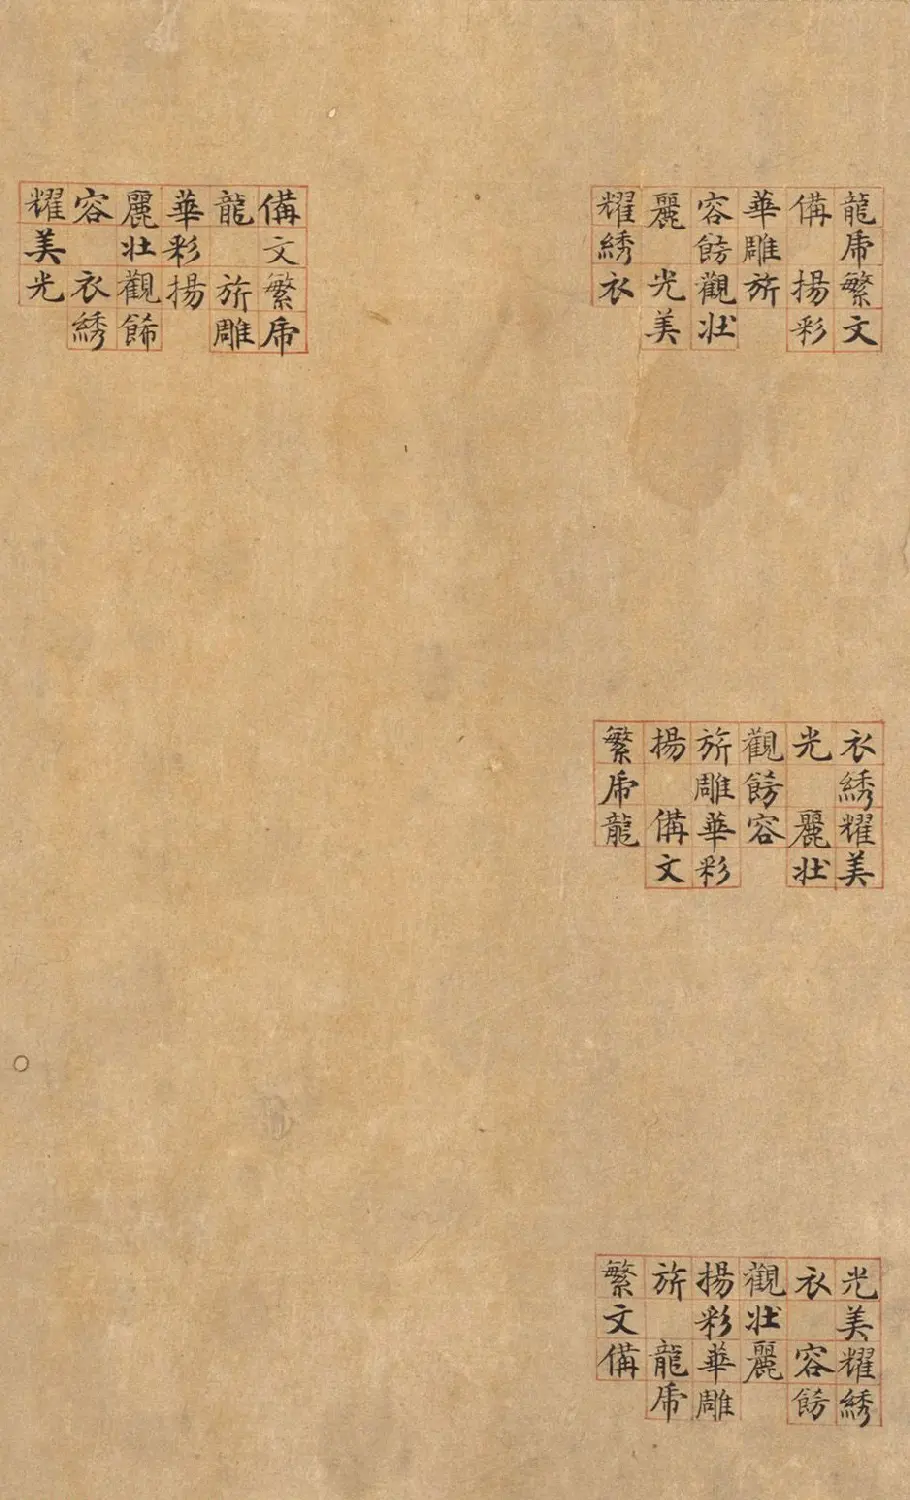 龍虎繁文
備揚彩
華雕旂
容餝觀壯
麗光美
耀綉衣
備文繁虎
龍旂雕
華彩揚
麗壯觀餙
容衣綉
耀美光
衣綉耀美
光麗壯
觀餝容
旂雕華彩
揚備文
繁虎龍
光美耀綉
衣容餝
觀壯麗
揚彩華雕
旂龍虎
繁文備